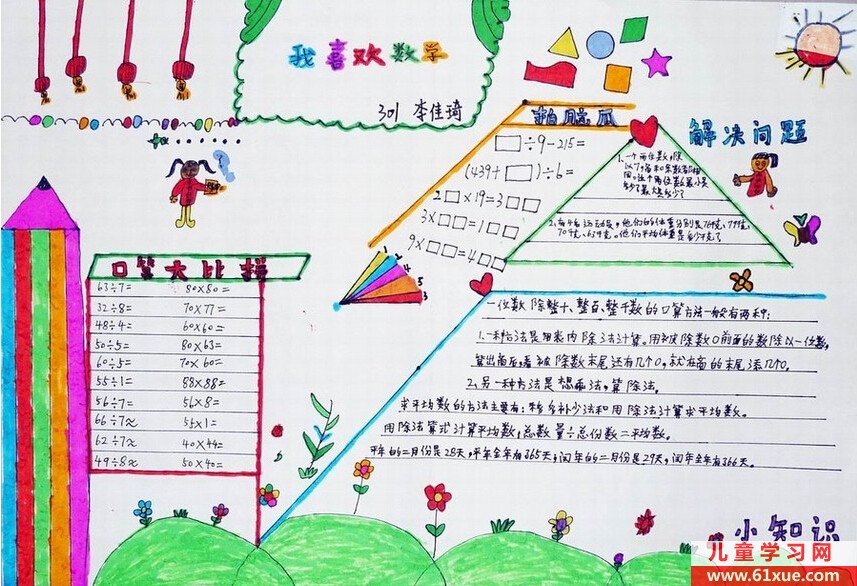 我喜欢数学
301 李佳琦
拍脑瓜
□÷9-215=
(439+□)÷6=
2□×19=3□□
3×□□=1□□
9×□□=4□□
解决问题
1、一个两位数,除
以7,商和余数都相
同。这个两位数最小是
多少?最大是多少?
口算大比拼
63÷7= 80×80=
32÷8= 70×77=
48÷4= 60×60=
50÷5= 80×63=
60÷5= 70×60=
55÷1= 88×88=
56÷7= 56×8=
66÷7≈ 55×1=
62÷7≈ 40×44=
49÷8≈ 50×40=
1
2
4
5
3
一位数除整十、整百、整千数的口算方法一般有两种:
1.一种方法是用表内除法计算。用被除数0前面的数除以一位数,
算出商后,看被除数末尾还有几个0,就在商的末尾添几个0。
2.另一种方法是想乘法,算除法。
求平均数的方法主要有:移多补少法和用除法计算求平均数。
用除法算式计算平均数,总数量÷总份数=平均数。
平年的二月份是28天,平年全年有365天,闰年的二月份是29天,闰年全年有366天。
小知识
儿童学习网
www.61xue.com